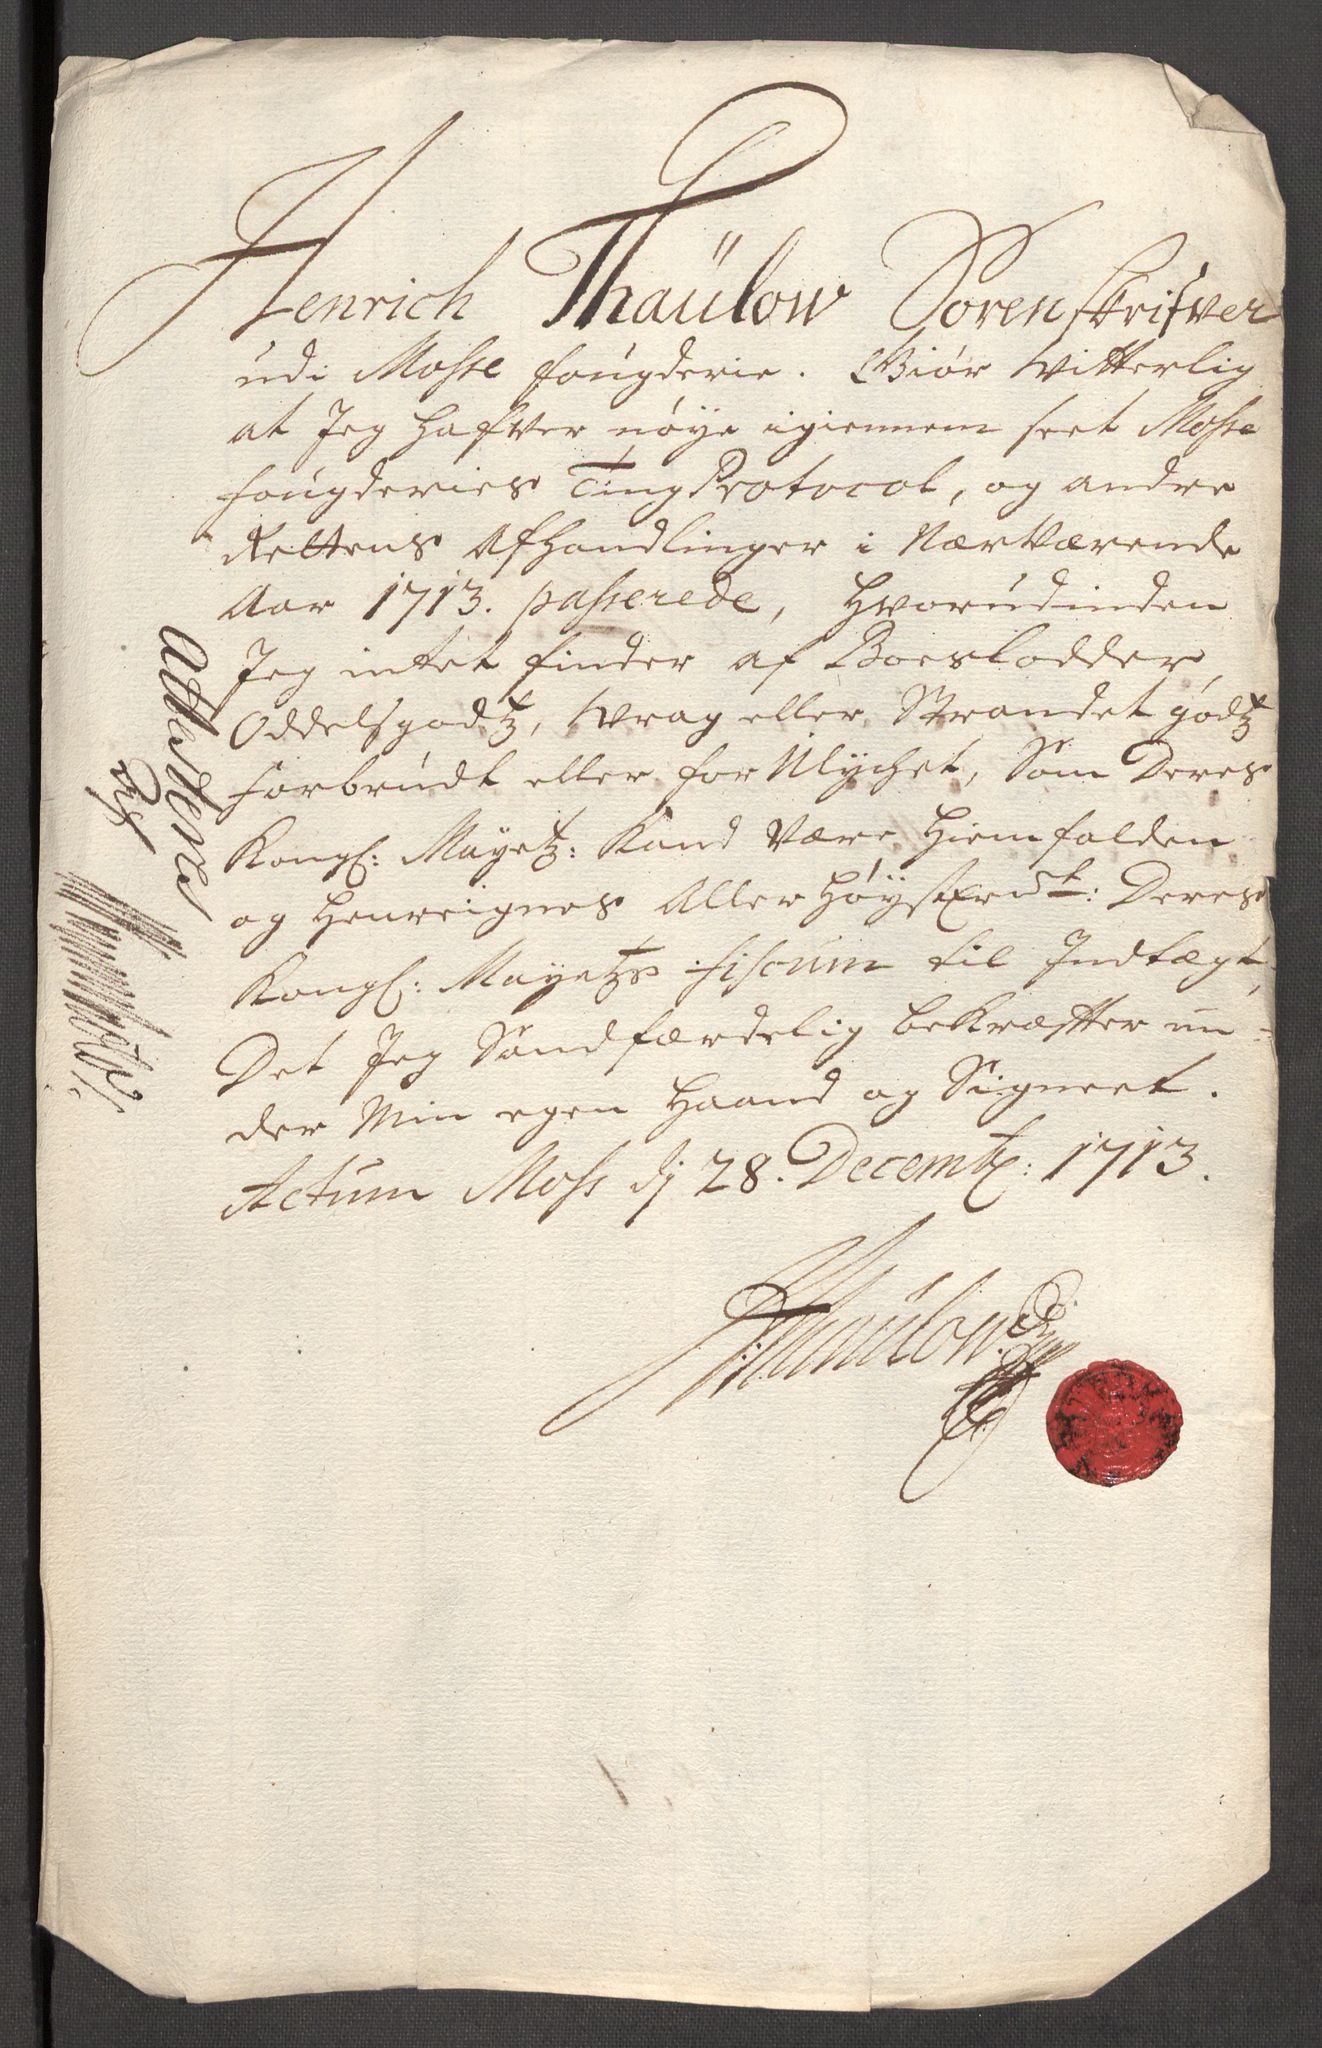 Henrich Thaülow Sorenskrifver
udi Mosse fougderie. Giør Witterlig
at Jeg hafver nøye igiennem seet Mosse
fougderies TingProtocol, og andre
Rettens Afhandlinger i Nærværende
Aar 1713. passerede, Hvorudinden
Jeg intet finder af Boeslodder,
Oddelsgodtz, Wrag eller Strandet godtz
forbrudt eller for Ulychet, Som Deres
Kongl: Mayetz: Kand være Hiemfalden
og Henreignes Allerhøystermelt: Deres
Kongl: Mayetzs fiscum til Indtægt,
Det Jeg Sandfærdelig bekræffter un-
der Min egen Haand og Signeet.
Actum Moss dj 28. Decembr: 1713.
HThaülow.
Attesteres